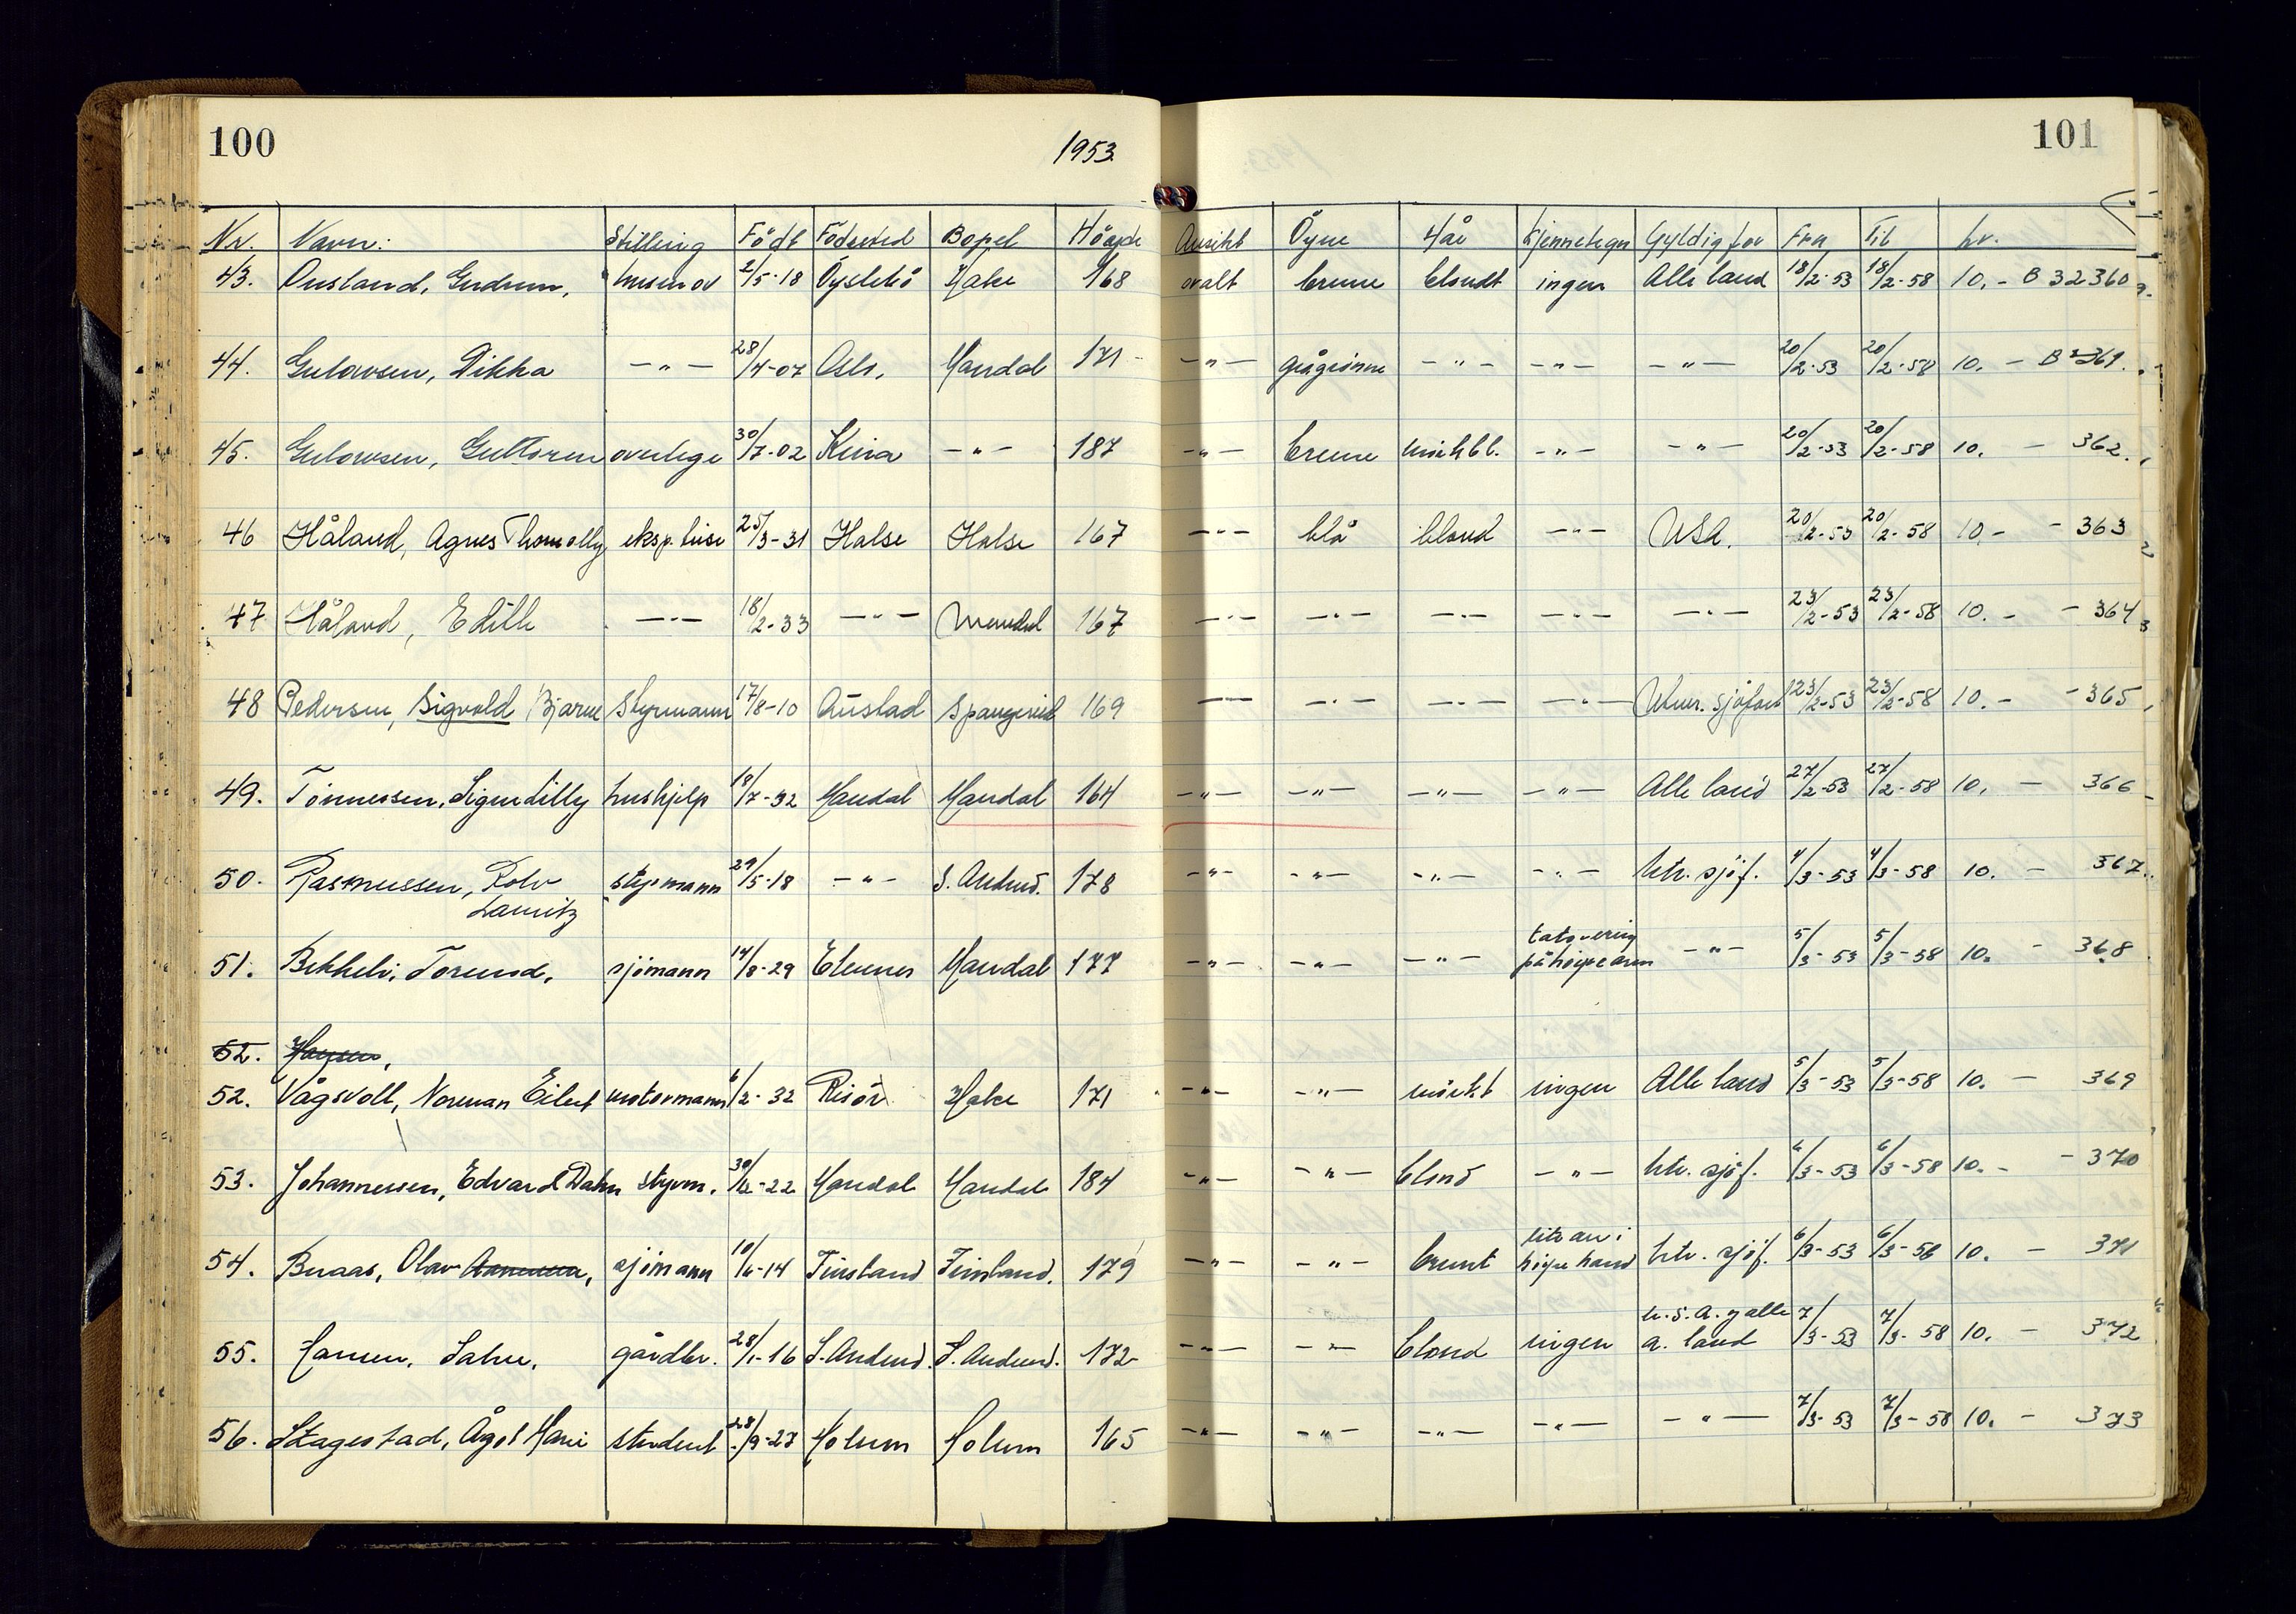 100
1953.
101
Nr. Navn: Stilling Født Fødested Bopel Høyde Ansikt Öyne Hår Kjennetegn Gyldig for Fra Til kr.
43. Ousland, Gudrun, husmor 2/5-18 Öyslebö Halse 168 ovalt brune blondt ingen Alle land 18/2-53 18/2-58 10.- B 32360
44. Gulowsen, Dikka -"- 28/4-07 Oslo, Mandal 171 -"- grågrönne -"- -"- -"- 20/2-53 20/2-58 10. - B 361.
45. Gulowsen, Guttorm overlege 30/7-02 Kina -"- 187 -"- brune mörkbl. -"- -"- 20/2-53 20/2-58 10. - 362.
46 Håland, Agnes Thomelly eksp. trise 25/3-31 Halse Halse 167 -"- blå blond -"- USA. 20/2-53 20/2-58 10.- - 363
47 Håland, Edith -"- 18/2-33 -"- Mandal 167 -"- -"- -"- -"- -"- 23/2-53 23/2-58 10.- - 364
48 Pedersen, Sigvald Bjarne Styrmann 17/8-10 Austad Spangereid 169 -"- -"- -"- -"- Utenr. sjøfart 23/2-53 23/2-58 10.- - 365
49. Tönnessen, Signe Lilly hushjelp 18/7-32 Mandal Mandal 164 -"- -"- -"- -"- Alle land 27/2-53 27/2-58 10. - 366
50. Rasmussen, Rolv styrmann 29/5-18 -"- S. Audned. 178 -"- -"- -"- -"- utr. sjöf. 4/3-53 4/3-58 10. - 367.
Lauritz
tatovering
51. Bekkeli, Torund, sjömann 14/8-29 Mandal 177 -"- -"- -"- på höyre arm -"- 5/3-53 5/3-58 10. - 368
52. Hansen,
52. Vågsvoll, Norman Eilert motormann 6/2-32 Risör Halse 171 -"- -"- mörkt ingen Alle land 5/3-53 5/3-58 10. - 369
53. Johannessen, Edvard Dahn styrm. 30/12-22 Mandal Mandal 184 -"- -"- blond -"- utr. sjöf. 6/3-53 6/3-58 10.- - 370
lite arr i
54. Buaas, Olav sjömann 10/6-14 Finsland Finsland. 179 -"- -"- brunt höyre hand utr. sjöf. 6/3-53 6/3-58 10. - 371
U.S.A. og alle
55. Hansen, gårdbr. 28/1-16 S. Audned. S. Audned. 172 -"- -"- blond ingen a. land 7/3-53 7/3-58 10. - 372
56. Skagestad, Ågot Marie student 28/9-27 Holum Holum 165 -"- -"- -"- -"- -"- 7/3-53 7/3-58 10. - 373